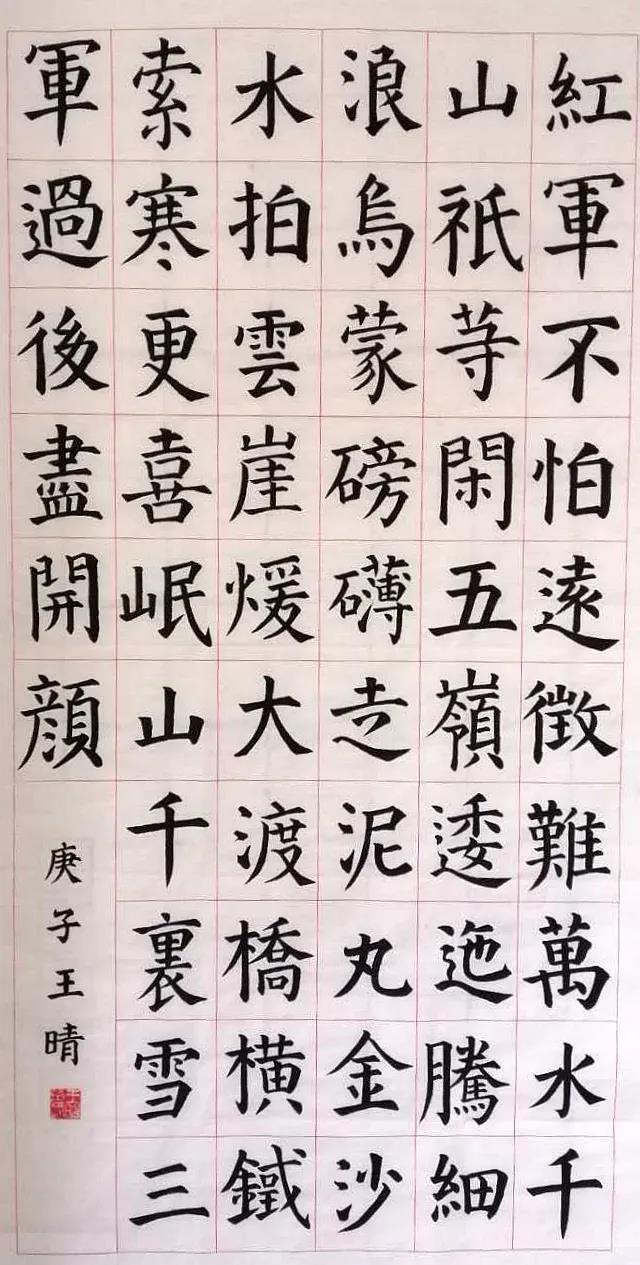 紅軍不怕遠徵難萬水千
山祇等閑五嶺逶迤騰細
浪烏蒙磅礴走泥丸金沙
水拍雲崖煖大渡橋橫鐵
索寒更喜岷山千裏雪三
軍過後盡開顔
庚子王晴